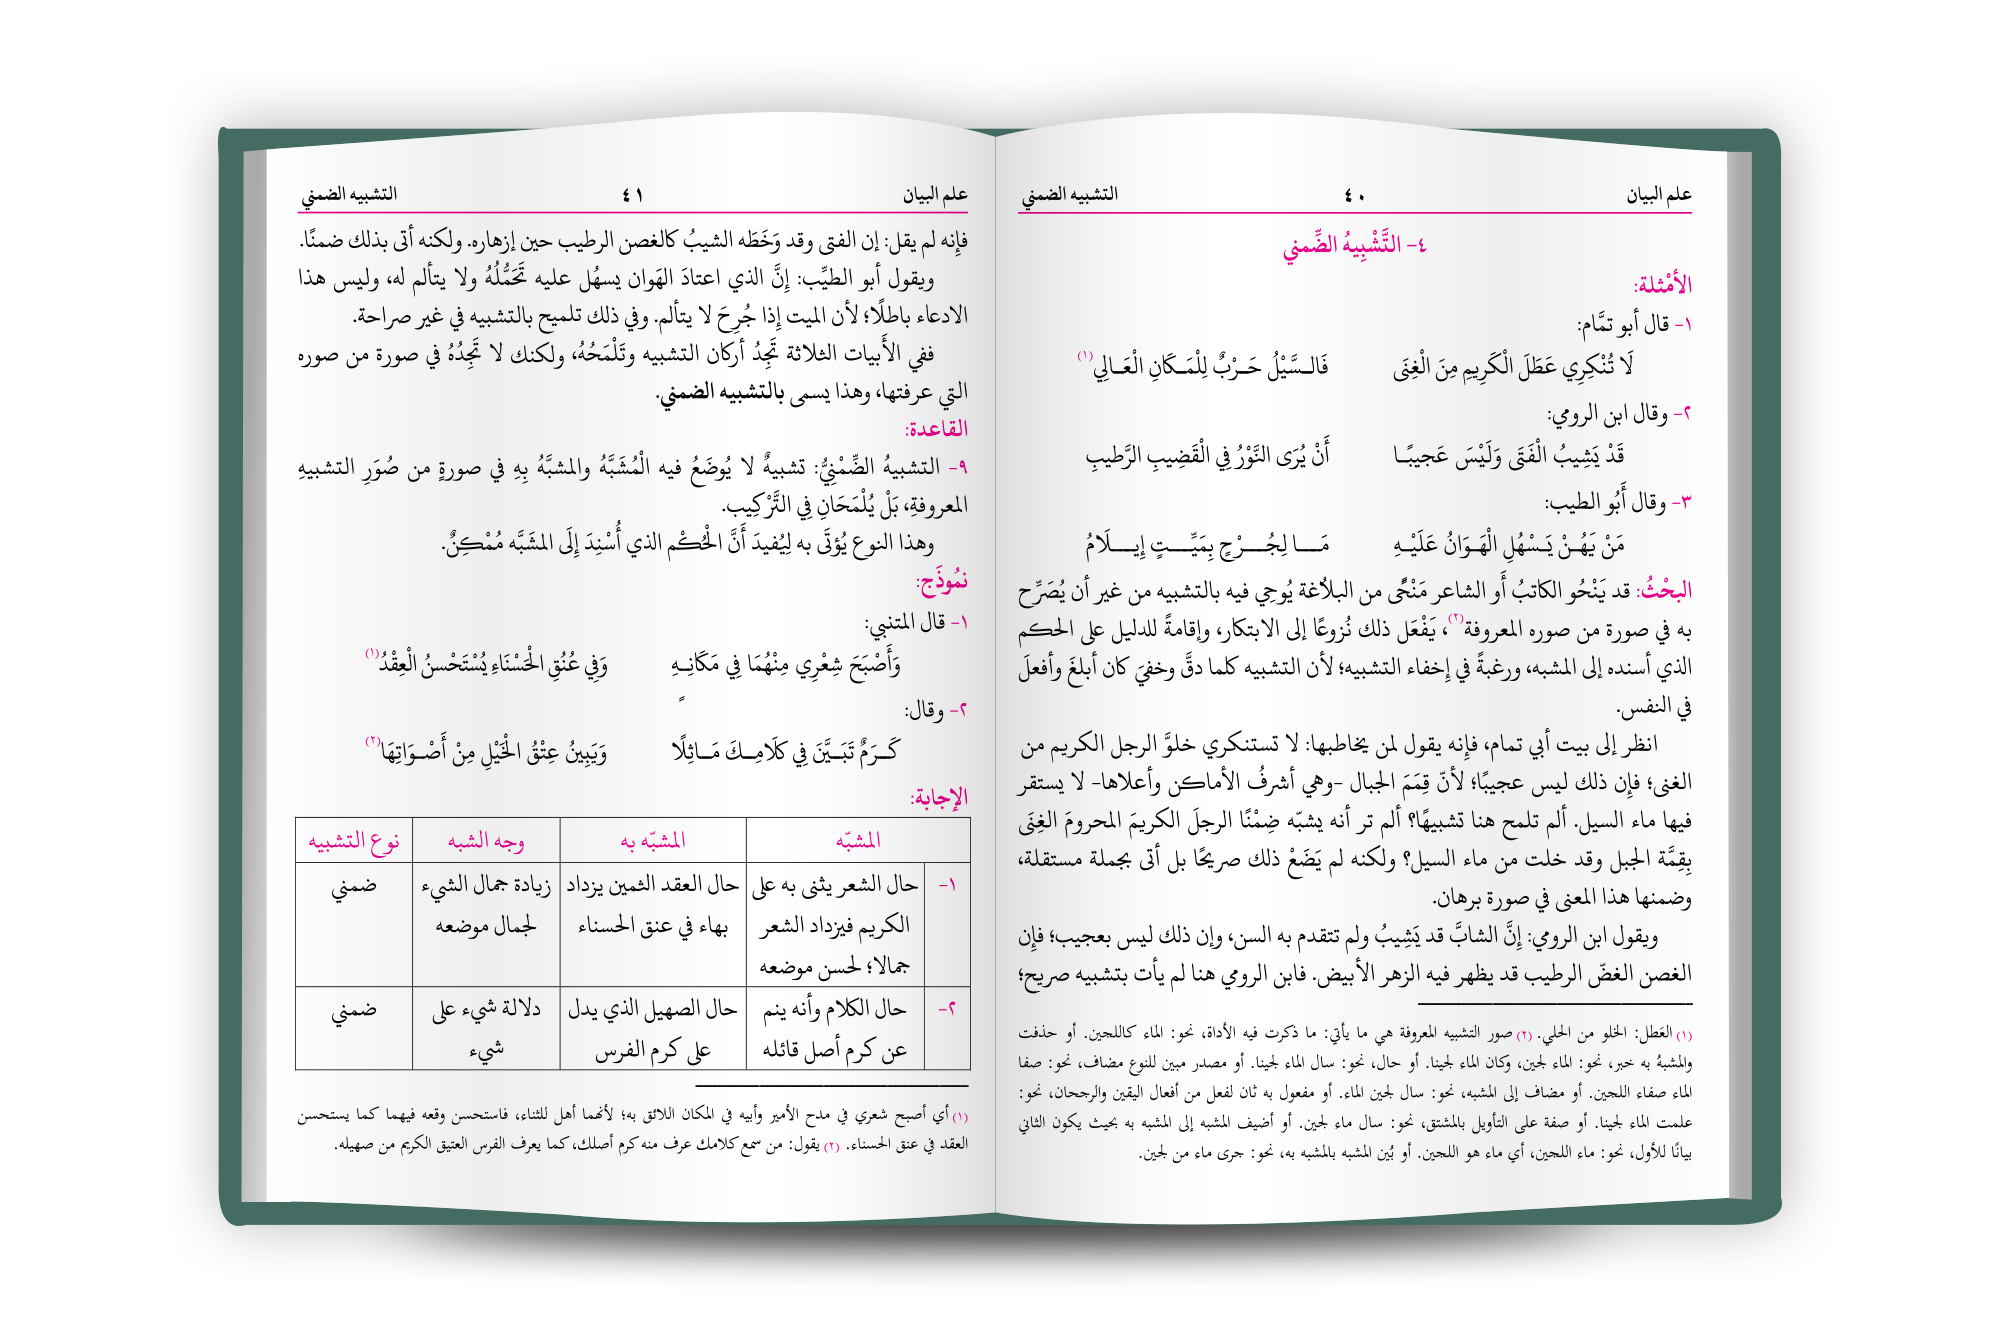 علم البيان ٤٠ التشبيه الضمني
٤- التَّشْبِيهُ الضِّمني
الأمْثلة:
١- قال أبو تمَّام:
لَا تُنْكِرِي عَطَلَ الْكَرِيمِ مِنَ الْغِنَى فَالسَّيْلُ حَرْبٌ لِلْمَكَانِ الْعَالِي(١)
٢- وقال ابن الرومي:
قَدْ يَشِيبُ الْفَتَى وَلَيْسَ عَجيبًا أَنْ يُرَى النَّوْرُ فِي الْقَضِيبِ الرَّطيبِ
٣- وقال أَبُو الطيب:
مَنْ يَهُنْ يَسْهُلِ الْهَوَانُ عَلَيْهِ مَا لِجُرْحٍ بِمَيِّتٍ إِيلَامُ
البحْثُ: قد يَنْحُو الكاتبُ أَو الشاعر مَنْحًى من البلاغة يُوحِي فيه بالتشبيه من غير أن يُصَرِّح
به في صورة من صوره المعروفة(٢)، يَفْعَل ذلك نُزوعًا إلى الابتكار، وإقامةً للدليل على الحكم
الذي أسنده إلى المشبه، ورغبةً في إِخفاء التشبيه؛ لأن التشبيه كلما دقَّ وخفيَ كان أبلغَ وأفعلَ
في النفس.
انظر إلى بيت أبي تمام، فإِنه يقول لمن يخاطبها: لا تستنكري خلوَّ الرجل الكريم من
الغنى؛ فإن ذلك ليس عجيبًا؛ لأنّ قِمَمَ الجبال -وهي أشرفُ الأماكن وأعلاها- لا يستقر
فيها ماء السيل. ألم تلمح هنا تشبيهًا؟ ألم تر أنه يشبّه ضِمْنًا الرجلَ الكريمَ المحرومَ الغِنَى
بِقِمَّة الجبل وقد خلت من ماء السيل؟ ولكنه لم يَضَعْ ذلك صريحًا بل أتى بجملة مستقلة،
وضمنها هذا المعنى في صورة برهان.
ويقول ابن الرومي: إِنَّ الشابَّ قد يَشِيبُ ولم تتقدم به السن، وإن ذلك ليس بعجيب؛ فإِن
الغصن الغضّ الرطيب قد يظهر فيه الزهر الأبيض. فابن الرومي هنا لم يأت بتشبيه صريح؛
(١) العَطل: الخلو من الحلي. (٢) صور التشبيه المعروفة هي ما يأتي: ما ذكرت فيه الأداة، نحو: الماء كاللجين. أو حذفت
والمشبهُ به خبر، نحو: الماء لجين، وكان الماء لجينا. أو حال، نحو: سال الماء لجينا. أو مصدر مبين للنوع مضاف، نحو: صفا
الماء صفاء اللجين. أو مضاف إلى المشبه، نحو: سال لجين الماء. أو مفعول به ثان لفعل من أفعال اليقين والرجحان، نحو:
علمت الماء لجينا. أو صفة على التأويل بالمشتق، نحو: سال ماء لجين. أو أضيف المشبه إلى المشبه به بحيث يكون الثاني
بيانًا للأول، نحو: ماء اللجين، أي ماء هو اللجين. أو بُين المشبه بالمشبه به، نحو: جرى ماء من لجين.
علم البيان ٤١ التشبيه الضمني
فإِنه لم يقل: إن الفتى وقد وَخَطَه الشيبُ كالغصن الرطيب حين إزهاره. ولكنه أتى بذلك ضمنًا.
ويقول أبو الطيِّب: إِنَّ الذي اعتادَ الهَوان يسهُل عليه تَحَمُّلُهُ ولا يتألم له، وليس هذا
الادعاء باطلًا؛ لأن الميت إِذا جُرِحَ لا يتألم. وفي ذلك تلميح بالتشبيه في غير صراحة.
ففي الأَبيات الثلاثة تَجِدُ أركان التشبيه وتَلْمَحُهُ، ولكنك لا تَجِدُهُ في صورة من صوره
التي عرفتها، وهذا يسمى بالتشبيه الضمني.
القاعدة:
٩- التشبيهُ الضِّمْنِيُّ: تشبيهٌ لا يُوضَعُ فيه الْمُشَبَّهُ والمشبَّهُ بِهِ في صورةٍ من صُوَرِ التشبيهِ
المعروفةِ، بَلْ يُلْمَحَانِ فِي التَّرْكِيب.
وهذا النوع يُؤتَى به لِيُفيدَ أَنَّ الْحُكْم الذي أُسْنِدَ إِلَى المشَبَّه مُمْكِنٌ.
نمُوذَج:
١- قال المتنبي:
وَأَصْبَحَ شِعْرِي مِنْهُمَا فِي مَكَانِهِ وَفِي عُنُقِ الْحَسْنَاءِ يُسْتَحْسنُ الْعِقْدُ(١)
٢- وقال:
كَرَمٌ تَبَيَّنَ فِي كلَامِكَ مَاثِلًا وَيَبِينُ عِتْقُ الْخَيْلِ مِنْ أَصْوَاتِهَا(٢)
الإجابة:
المشبّه المشبّه به وجه الشبه نوع التشبيه
١- حال الشعر يثنى به على حال العقد الثمين يزداد زيادة جمال الشيء ضمني
الكريم فيزداد الشعر بهاء في عنق الحسناء لجمال موضعه
جمالا؛ لحسن موضعه
٢- حال الكلام وأنه ينم حال الصهيل الذي يدل دلالة شيء على ضمني
عن كرم أصل قائله على كرم الفرس شيء
(١) أي أصبح شعري في مدح الأمير وأبيه في المكان اللائق به؛ لأنهما أهل للثناء، فاستحسن وقعه فيهما كما يستحسن
العقد في عنق الحسناء. (٢) يقول: من سمع كلامك عرف منه كرم أصلك، كما يعرف الفرس العتيق الكريم من صهيله.